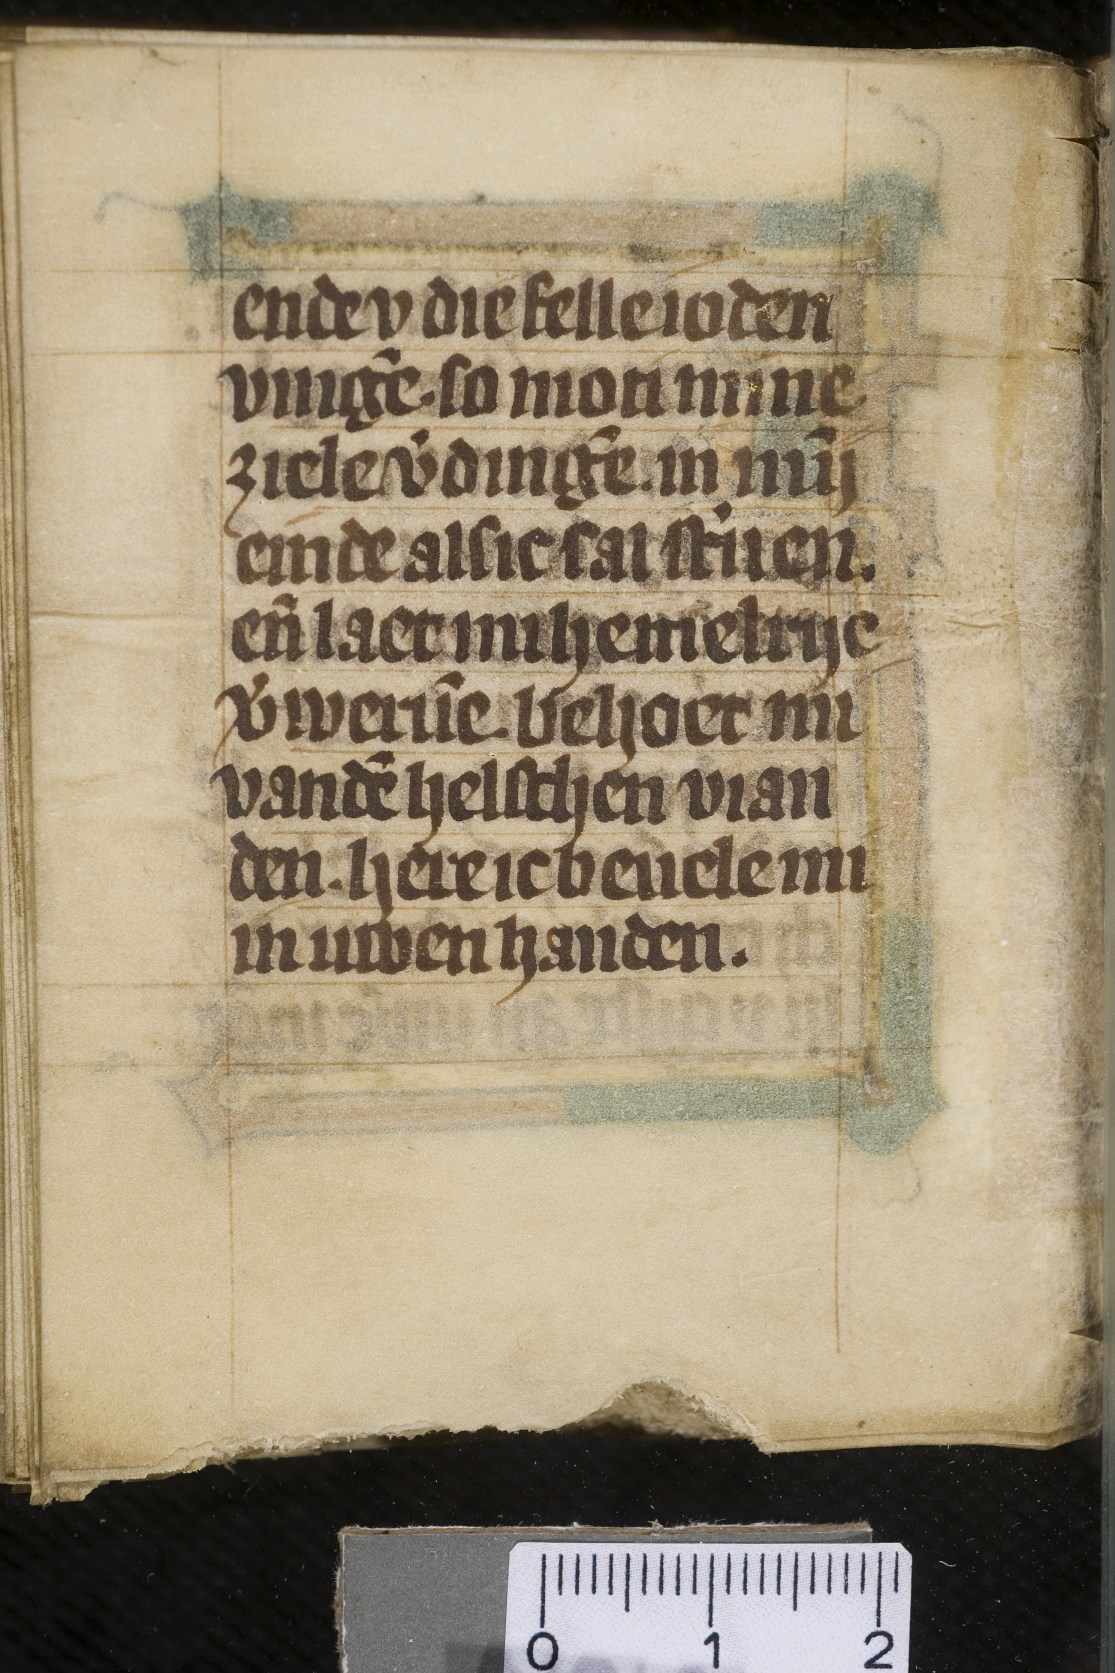 ende v die felle ioden
vingẽ. so moti mine
ziele v̾dingẽ. in mīj
einde als ic sal st̾uen.
eñ laet mi hemelrijc
v̾weruẽ. behoet mi
vandẽ helschen vian
den. here ic beuele mi
in uwen handen.
0 1 2